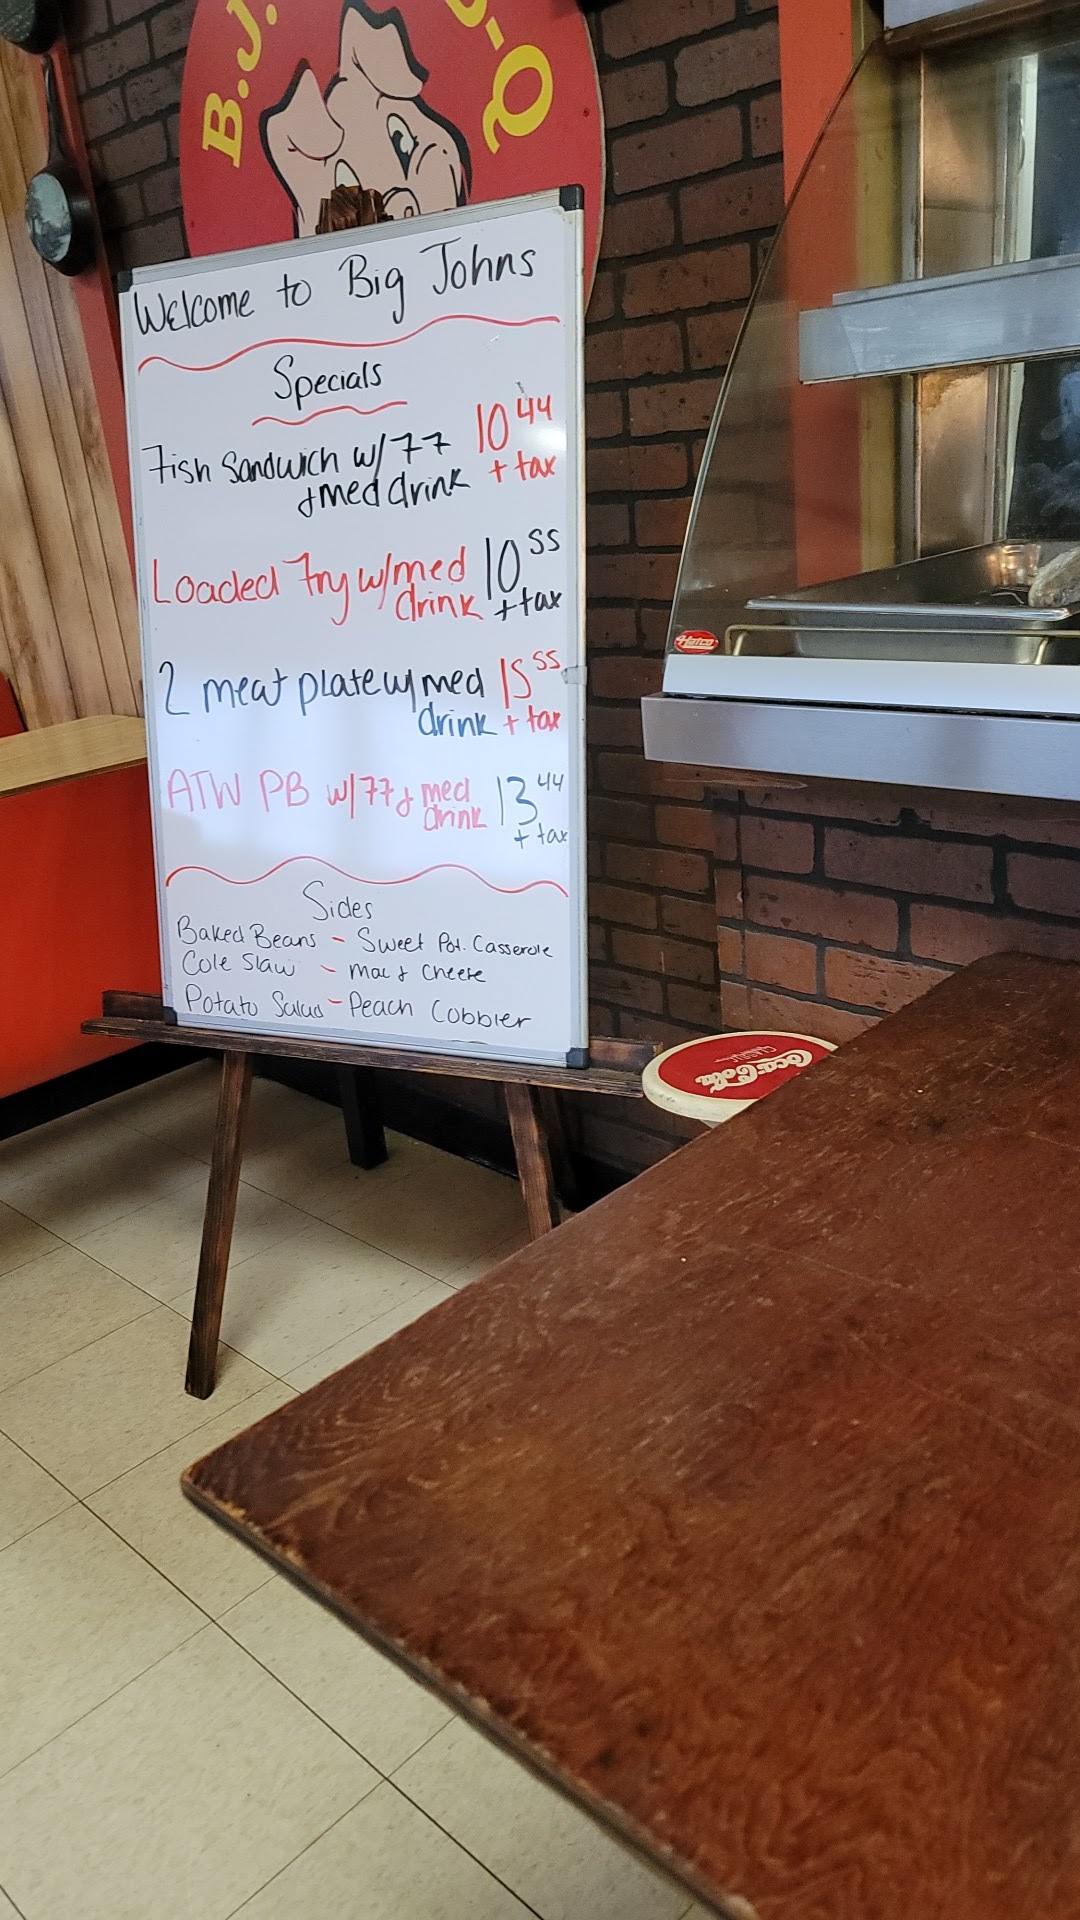 B.J. B-Q
Welcome to Big Johns
Specials
Fish Sandwich w/ FF 10 44
& med drink + tax
Loaded Fry w/ med 10 55
drink + tax
2 meat plate w/ med 15 55
drink + tax
ATW PB w/ FF & med 13 44
drink + tax
Sides
Baked Beans - Sweet Pot. Casserole
Cole Slaw - Mac & Cheese
Potato Salad - Peach Cobbler
Hatco
Coca-Cola
CLASSIC